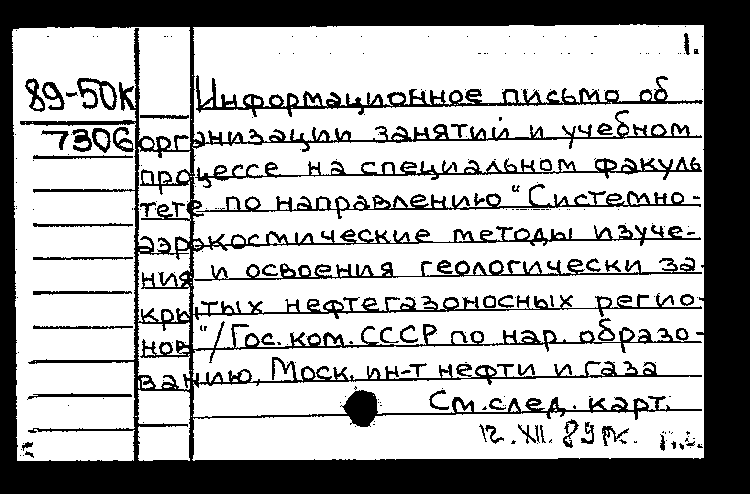 1.
89-50К
7306
Информационное письмо об
организации занятий и учебном
процессе на специальном факуль
тете по направлению "Системно-
аэрокосмические методы изуче-
ния и освоения геологически за-
крытых нефтегазоносных регио-
нов"/Гос.ком.СССР по нар. образо-
ванию, Моск. ин-т нефти и газа
См.след.карт.
12.XII.89